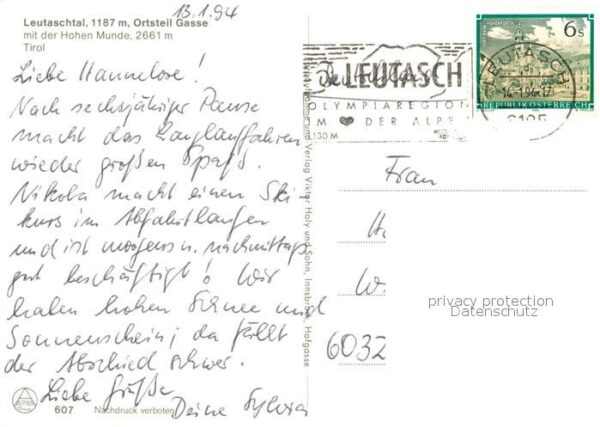 13.1.94
Leutaschtal, 1187 m, Ortsteil Gasse
mit der Hohen Munde, 2661 m
Tirol
Liebe Hannelore!
Nach sechsjähriger Pause
macht das Langlauffahren
wieder großen Spaß.
Nikola macht einen Ski-
kurs im Abfahrtlaufen
und ist morgens u. nachmittags
gut beschäftigt! Wir
haben hohen Schnee und
Sonnenschein; da fällt
der Abschied schwer.
Liebe Grüße
Deine Sylvia
607 Nachdruck verboten
Verlag Viktor Holy und Sohn, Innsbruck, Hofgasse
LEUTASCH
OLYMPIAREGION
IM DER ALPEN
1130 M
LEUTASCH
14-1.94-17
6105
6s
REPUBLIK ÖSTERREICH
Frau
H.
W.
6032
privacy protection
Datenschutz